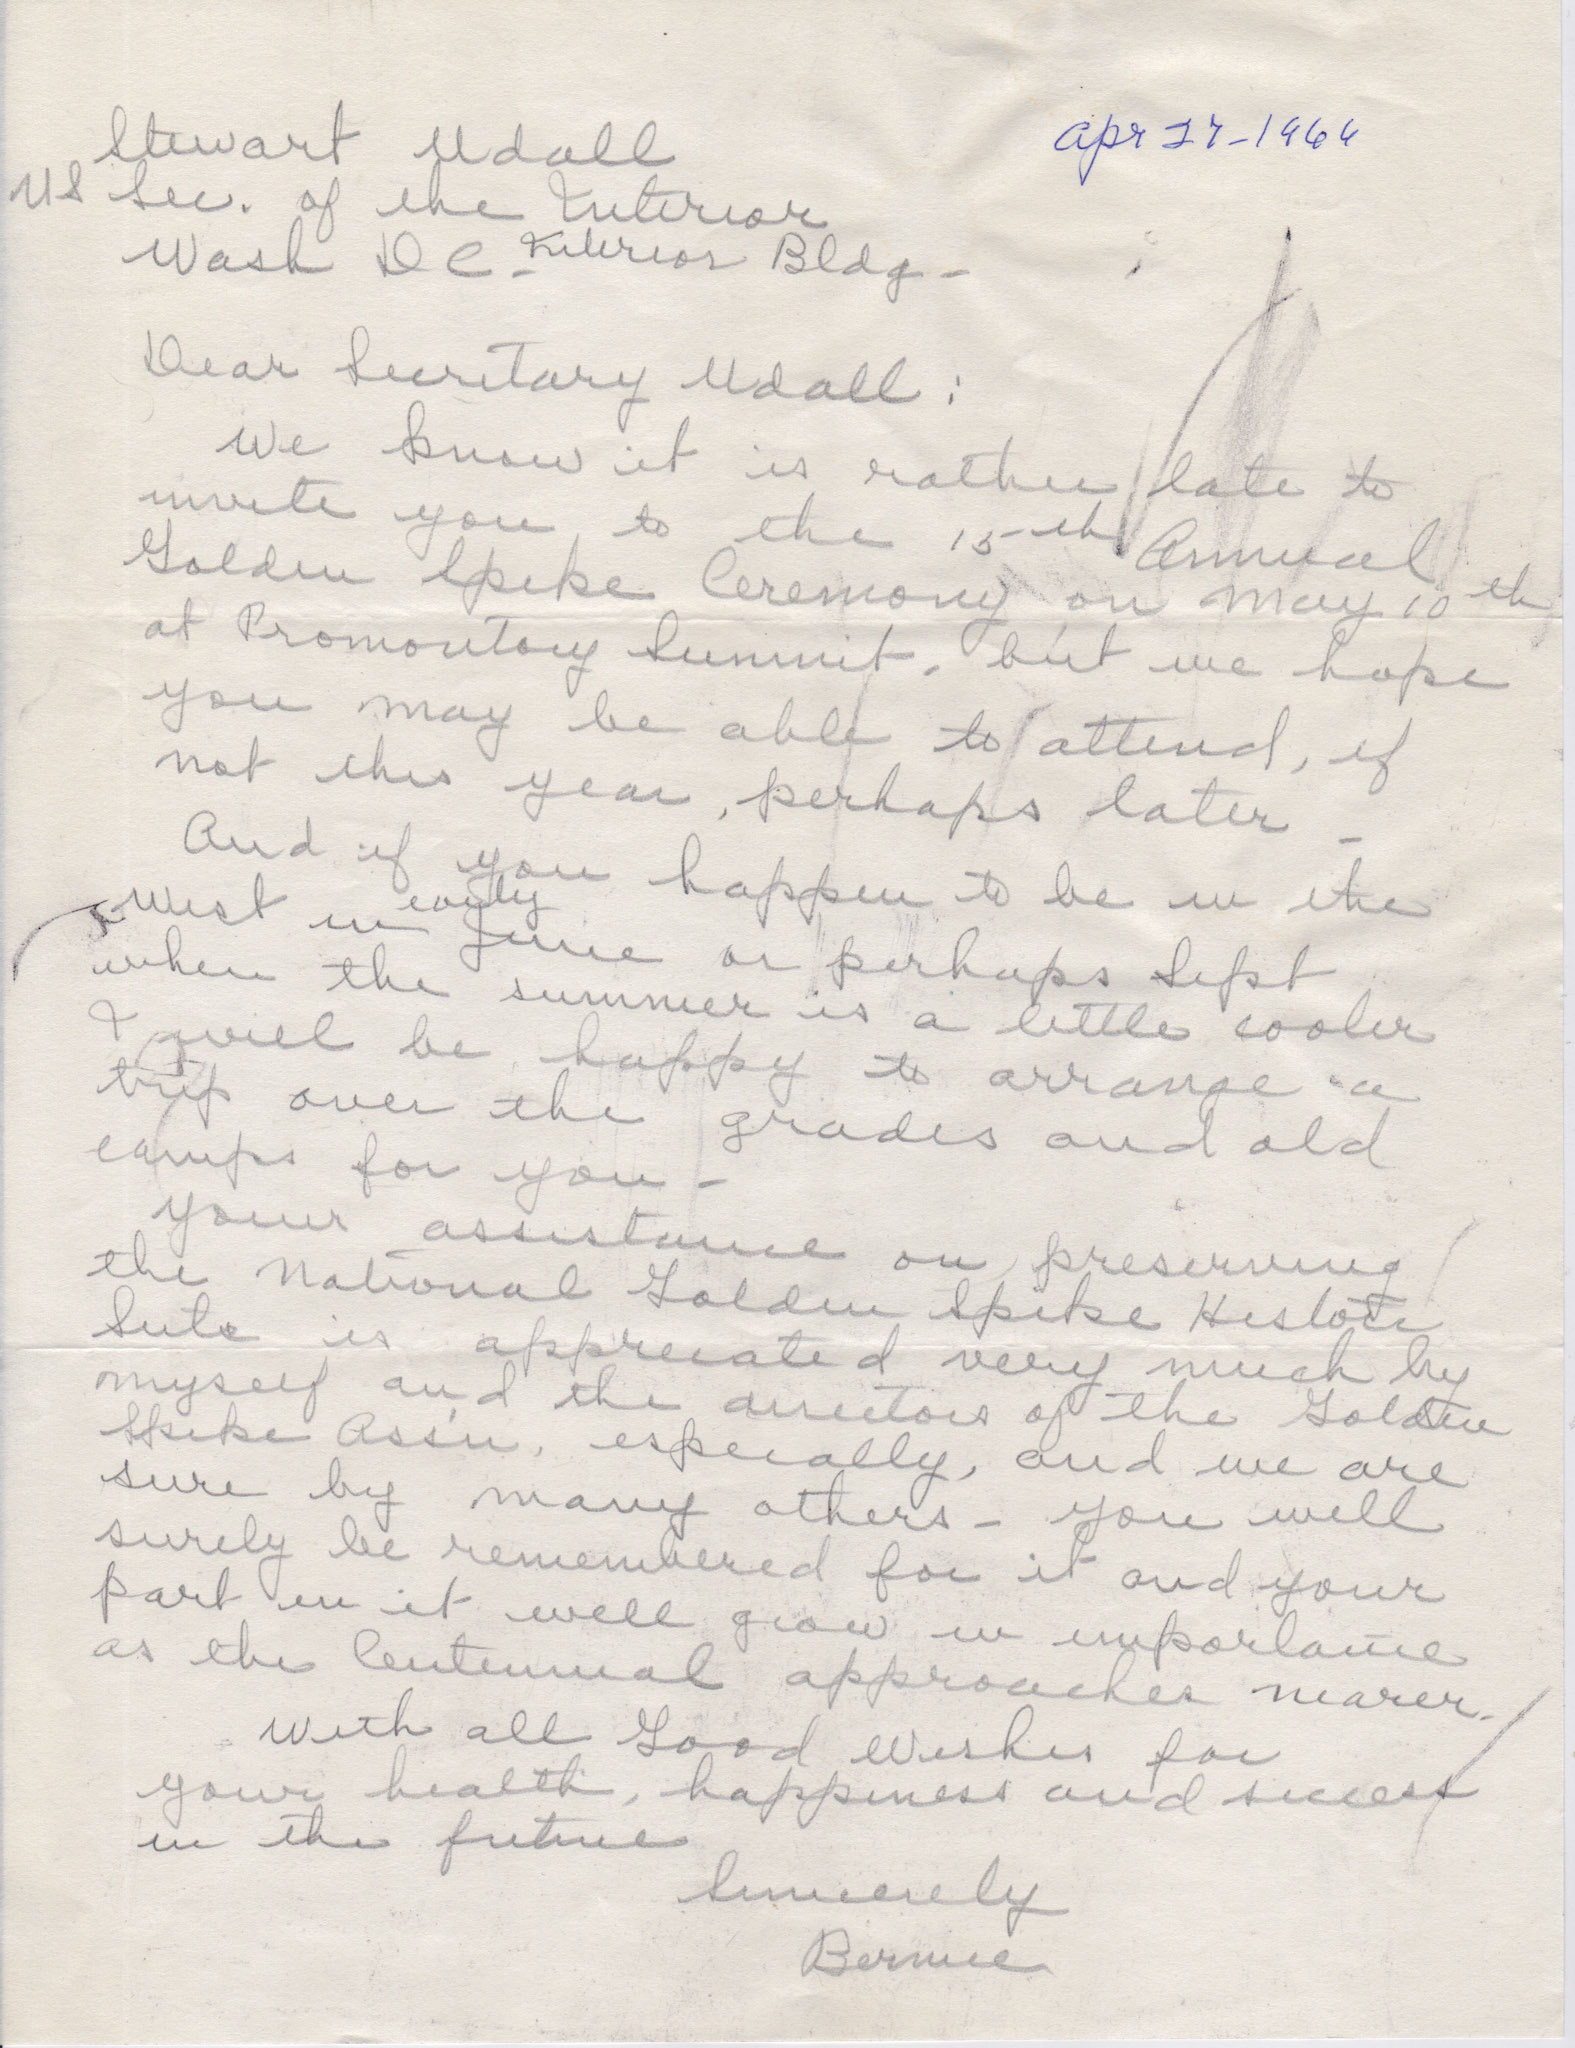 Apr 27-1966
Stewart Udall
US Sec. of the Interior
Wash D C - Interior Bldg -
Dear Secretary Udall :
We know it is rather late to
invite you to the 15th Annual
Golden Spike Ceremony on May 10th
at Promontory Summit, but we hope
you may be able to attend, if
not this year, perhaps later -
And if you happen to be in the
West in early June or perhaps Sept
when the summer is a little cooler
I will be happy to arrange a
trip over the grades and old
camps for you -
Your assistance on preserving
the National Golden Spike Historic
Site is appreciated very much by
myself and the directors of the Golden
Spike Ass'n, especially, and we are
sure by many others - You will
surely be remembered for it and your
part in it will grow in importance
as the Centennial approaches nearer.
With all Good Wishes for
your health, happiness and success
in the future
Sincerely
Bernice